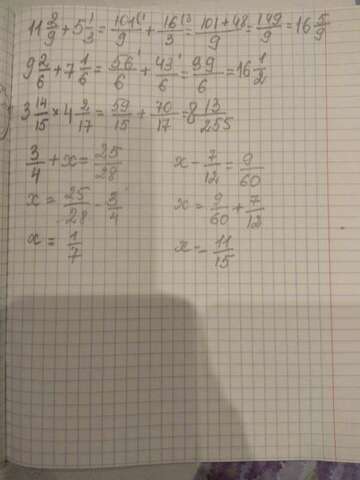 11 2/9 + 5 1/3 = 101/9 + 16/3 = 101+48/9 = 149/9 = 16 5/9
9 2/6 + 7 1/6 = 56/6 + 43/6 = 99/6 = 16 1/2
3 14/15 + 4 2/17 = 59/15 + 70/17 = 8 13/255
3/4 + x = 25/28
x = 25/28 - 3/4
x = 1/7
x - 7/12 = 9/60
x = 9/60 + 7/12
x = 11/15